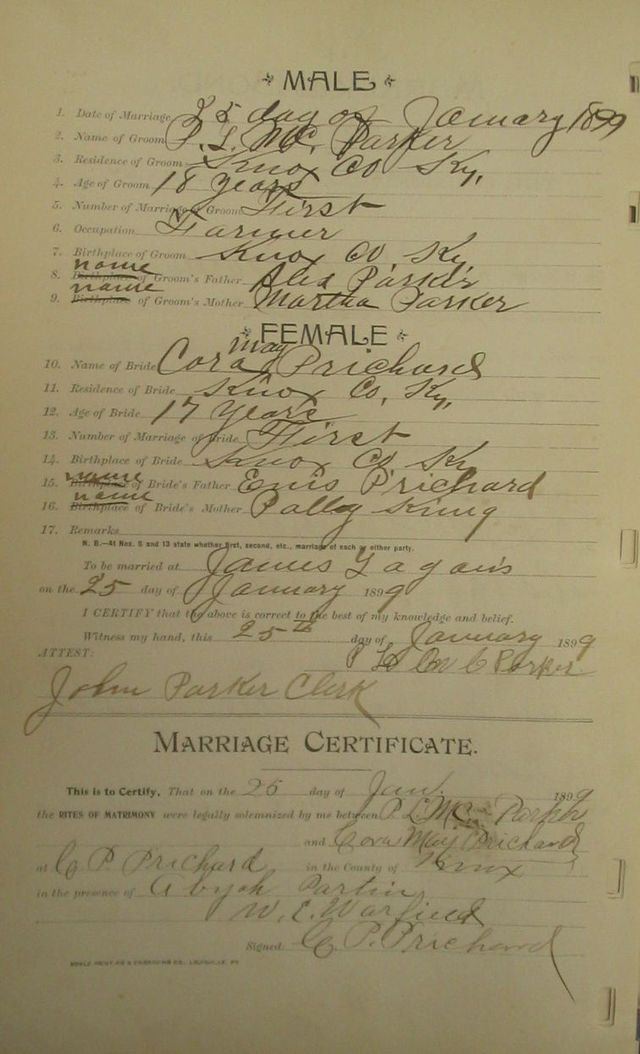 MALE
1. Date of Marriage 25 day of January 1899
2. Name of Groom P. L. Mc. Parker
3. Residence of Groom Knox Co Ky.
4. Age of Groom 18 years
5. Number of Marriage of Groom First
6. Occupation Farmer
7. Birthplace of Groom Knox Co Ky
name
8. Birthplace of Groom's Father Alex Parker
name
9. Birthplace of Groom's Mother Martha Parker
FEMALE
may
10. Name of Bride Cora Prichard
11. Residence of Bride Knox Co, Ky,
12. Age of Bride 17 Years
13. Number of Marriage of Bride First
14. Birthplace of Bride Knox Co Ky
name
15. Birthplace of Bride's Father Enis Prichard
name
16. Birthplace of Bride's Mother Polly King
17. Remarks
N. B.—At Nos. 5 and 13 state whether first, second, etc., marriage of each or either party.
To be married at James
on the 25 day of January 1899
I CERTIFY that the above is correct to the best of my knowledge and belief.
Witness my hand, this 25th day of January 1899
P L Mc Parker
ATTEST:
John Parker Clerk
MARRIAGE CERTIFICATE.
This is to Certify, That on the 25 day of Jan. 1899
the RITES OF MATRIMONY were legally solemnized by me between P. L. Mc Parker
and Cora May Prichard
at C P Prichard in the County of Knox
in the presence of
W. E. Warfield
Signed: C. P. Prichard